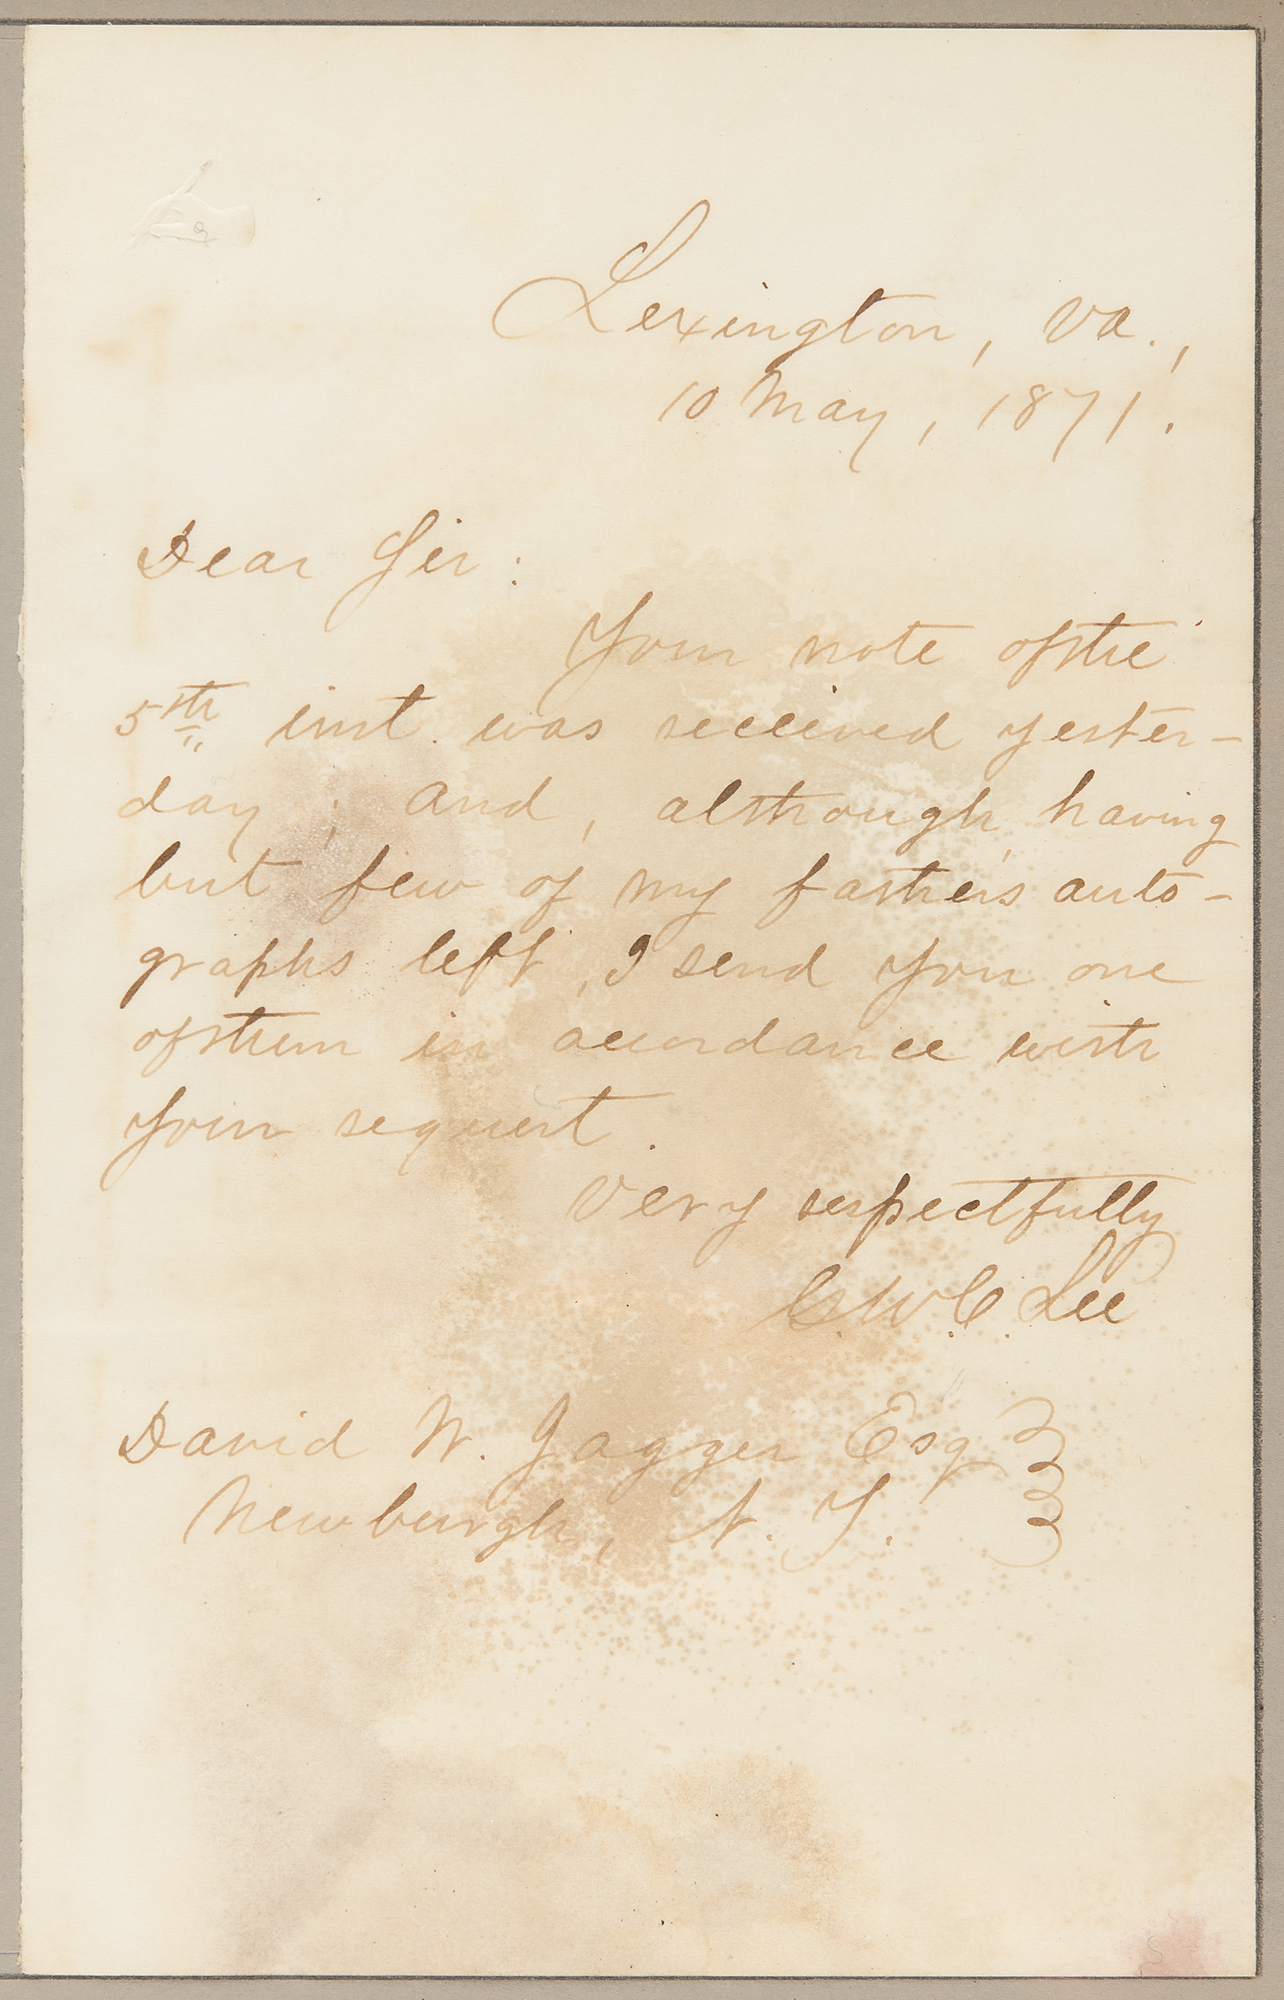 Lexington, Va.,
10 May, 1871.
Dear Sir:
Your note of the
5th inst. was received yester-
day; and, although having
but few of my father's auto-
graphs left, I send you one
of them in accordance with
your request.
Very respectfully
G. W. C. Lee
David W. Jagger Esq
Newburgh, N. Y.